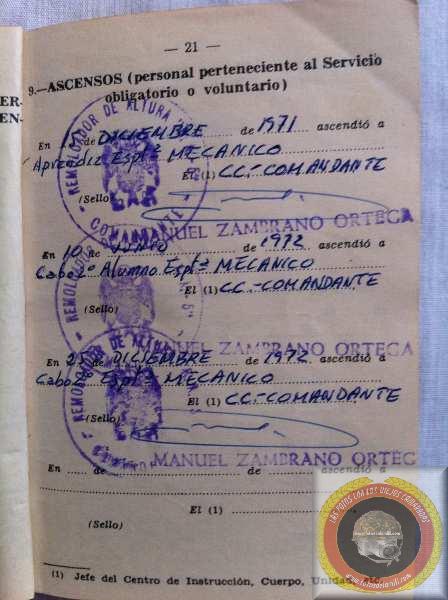 — 21 —
ER-
EN-
9.—ASCENSOS (personal perteneciente al Servicio
obligatorio o voluntario)
En de DICIEMBRE de 1971 ascendió a
Aprendiz Espltª MECANICO
El (1) CC.-COMANDANTE
(Sello)
MANUEL ZAMBRANO ORTEGA
En 10 de JUNIO de 1972 ascendió a
Cabo 2º Alumno Espltª MECANICO
El (1) CC.-COMANDANTE
(Sello)
MANUEL ZAMBRANO ORTEGA
En 25 de DICIEMBRE de 1972 ascendió a
Cabo 2º Espltª MECANICO
El (1) CC.-COMANDANTE
(Sello)
MANUEL ZAMBRANO ORTEG
En de de ascendió a
El (1)
(Sello)
(1) Jefe del Centro de Instrucción, Cuerpo, Unidad,
REMOLCADOR DE ALTURA
COMANDANTE
REMOLCADOR
REMOLCADOR DE ALTURA
LAS FOTOS CON LOS VIEJOS CAMARADAS